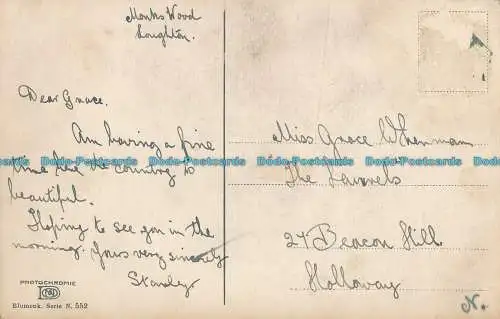 Monks Wood
Loughton.
Dear Grace.
Am having a fine
time here the country is
beautiful.
Hoping to see you in the
morning. Yours very sincerely
Stanley
Miss Grace
The Laurels
27 Beacon Hill
Holloway
N.
PHOTOCHROMIE
Blumenk. Serie N. 552
Dodo-Postcards Dodo-Postcards Dodo-Postcards Dodo-Postcards Dodo-Postcards